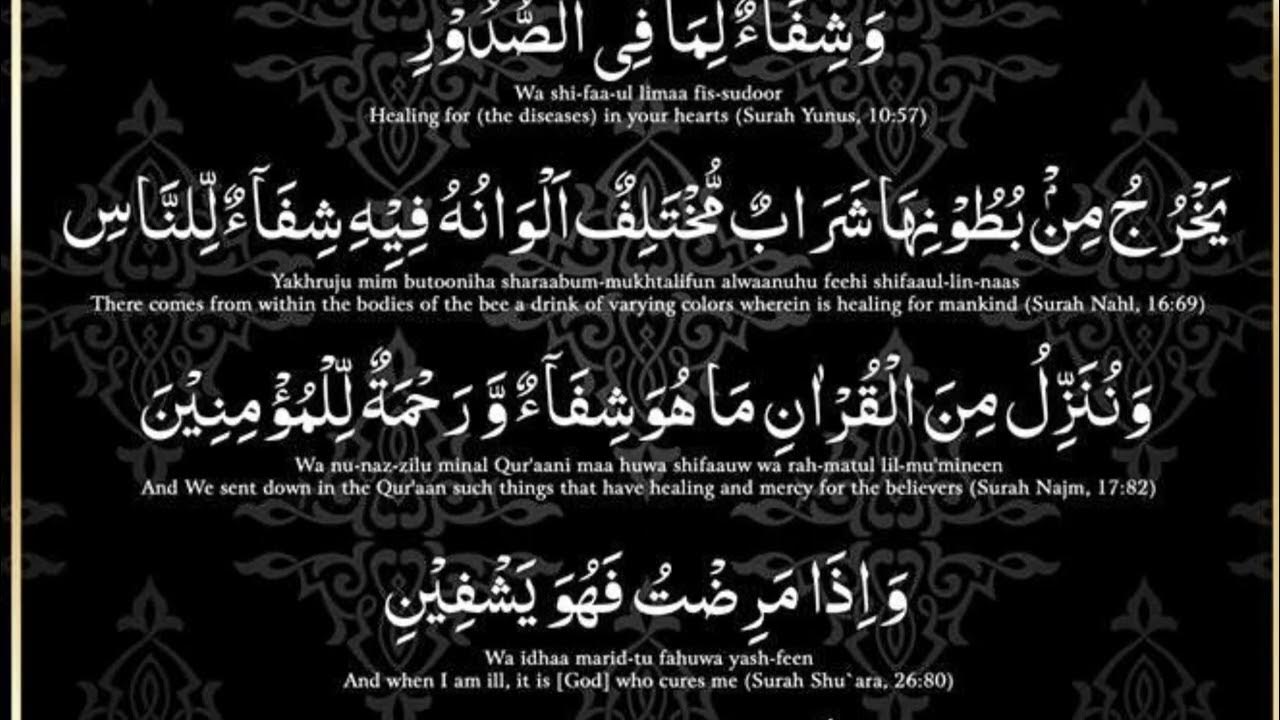 وَشِفَآءٌ لِّمَا فِی الصُّدُوْرِ
Wa shi-faa-ul limaa fis-sudoor
Healing for (the diseases) in your hearts (Surah Yunus, 10:57)
يَخْرُجُ مِنْۢ بُطُوْنِهَا شَرَابٌ مُّخْتَلِفٌ اَلْوَانُهُ فِيْهِ شِفَآءٌ لِّلنَّاسِ
Yakhruju mim butooniha sharaabum-mukhtalifun alwaanuhu feehi shifaaul-lin-naas
There comes from within the bodies of the bee a drink of varying colors wherein is healing for mankind (Surah Nahl, 16:69)
وَنُنَزِّلُ مِنَ الْقُرْاٰنِ مَا هُوَ شِفَآءٌ وَّ رَحْمَةٌ لِّلْمُؤْمِنِيْنَ
Wa nu-naz-zilu minal Qur'aani maa huwa shifaauw wa rah-matul lil-mu'mineen
And We sent down in the Qur'aan such things that have healing and mercy for the believers (Surah Najm, 17:82)
وَاِذَا مَرِضْتُ فَهُوَ يَشْفِيْنِ
Wa idhaa marid-tu fahuwa yash-feen
And when I am ill, it is [God] who cures me (Surah Shu`ara, 26:80)